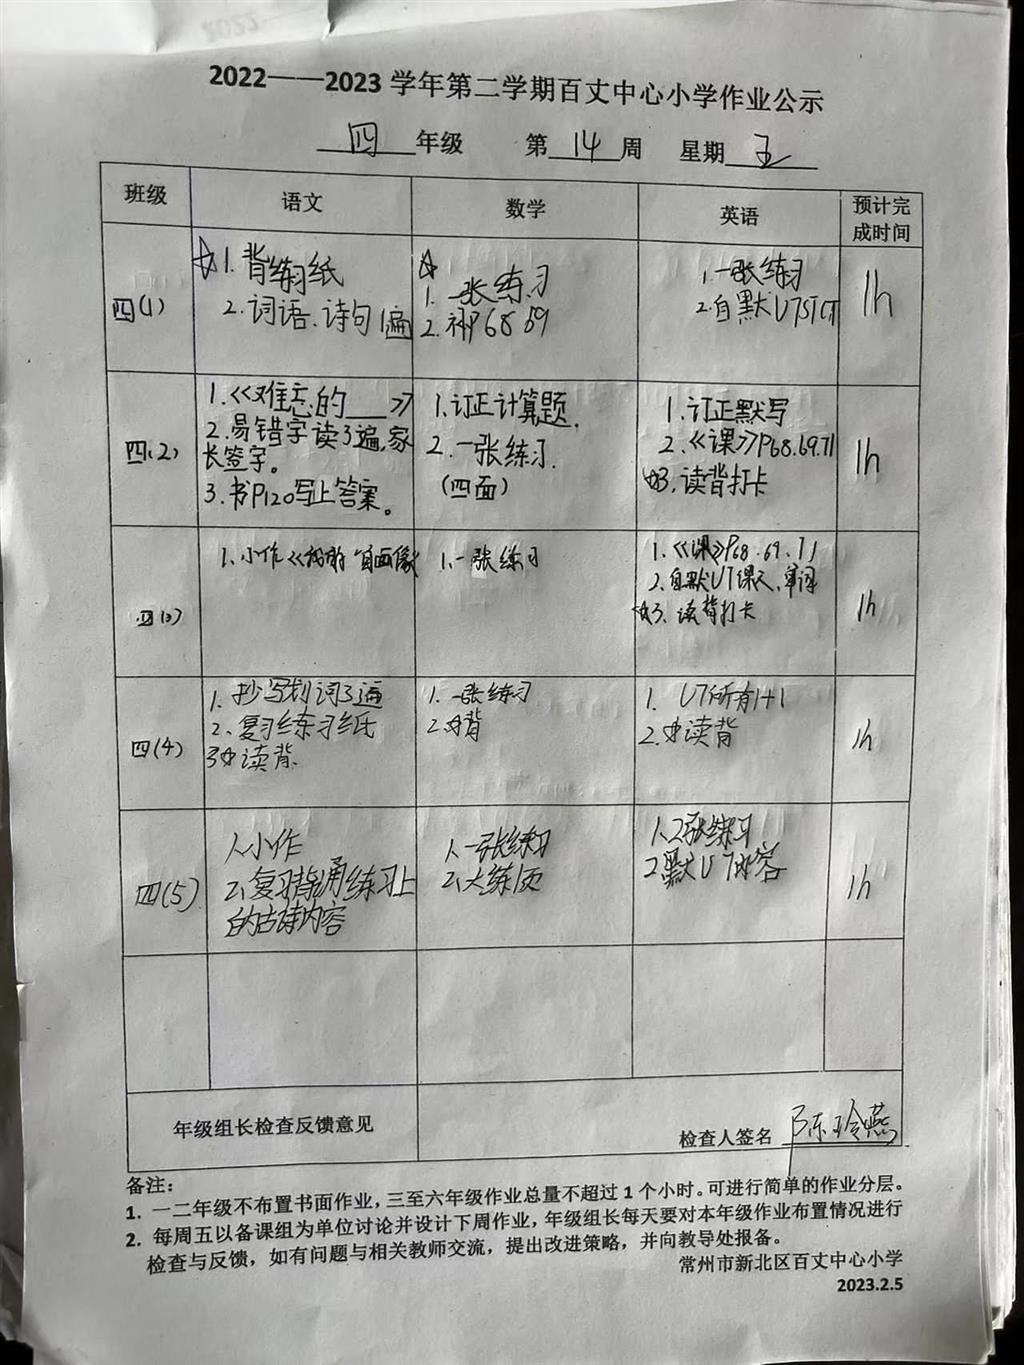 2022——2023 学年第二学期百丈中心小学作业公示
四 年级 第 14 周 星期 五
班级 语文 数学 英语 预计完成时间
四(1)
☆1.背练习纸
2.词语、诗句1遍
☆
1.一张练习
2.补P68 69
1.一张练习
2.自默U7
1h
四(2)
1.《难忘的___》
2.易错字读3遍,家
长签字。
3.书P120写上答案。
1.订正计算题.
2.一张练习.
(四面)
1.订正默写
2.《课》P68.69.71
☆3.读背打卡
1h
四(3)
1.小作《我的自画像》
1.一张练习
1.《课》P68.69.71
2.自默U7课文、单词
☆3.读背打卡
1h
四(4)
1.抄写划词3遍
2.复习练习纸
3☆读背.
1.一张练习
2.☆背
1. U7所有1+1
2.☆读背
1h
四(5)
1.小作
2.复习背诵练习上
的古诗内容
1.一张练习
2.大练1页
1.2张练习
2.默U7内容
1h
年级组长检查反馈意见
检查人签名 陈玲燕
备注:
1. 一二年级不布置书面作业,三至六年级作业总量不超过 1 个小时。可进行简单的作业分层。
2. 每周五以备课组为单位讨论并设计下周作业,年级组长每天要对本年级作业布置情况进行
检查与反馈,如有问题与相关教师交流,提出改进策略,并向教导处报备。
常州市新北区百丈中心小学
2023.2.5